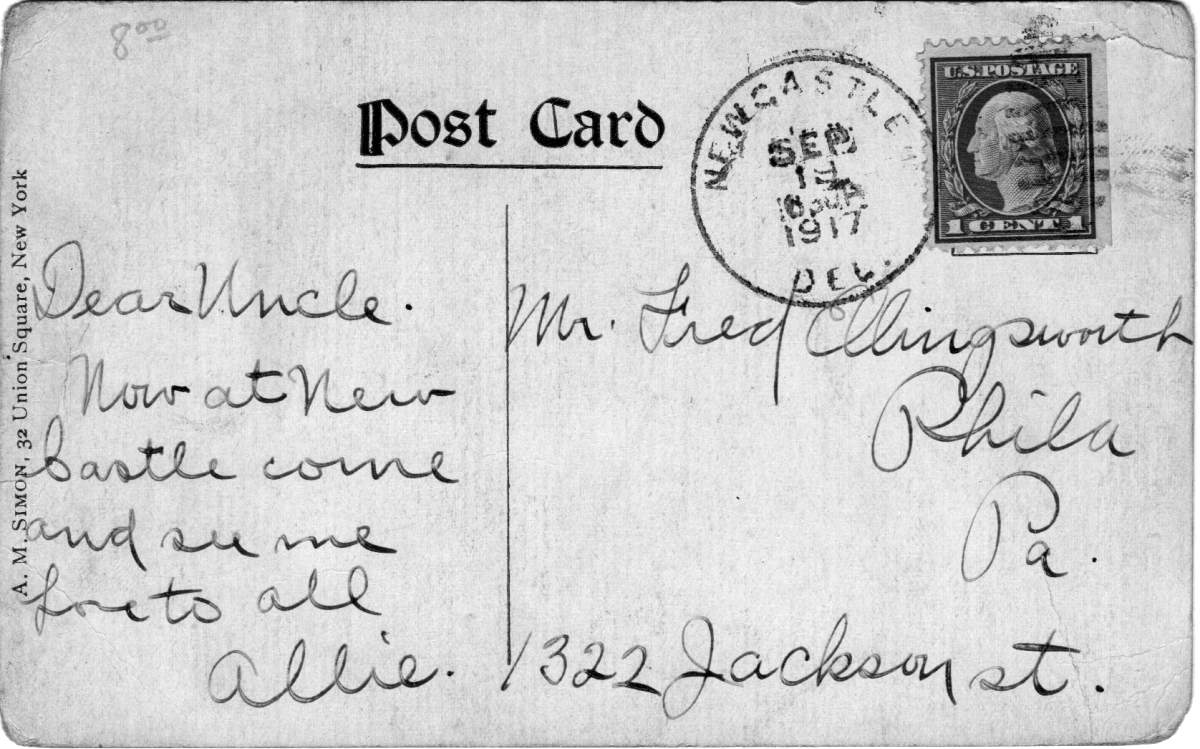 8.00
Post Card
U.S. POSTAGE
1 CENT 1
NEWCASTLE
SEP
1917
DEL.
A. M. SIMON, 32 Union Square, New York
Dear Uncle.
Now at New
Castle come
and see me
love to all
Allie.
Mr. Fred Ellingsworth
Phila
Pa.
1322 Jackson st.